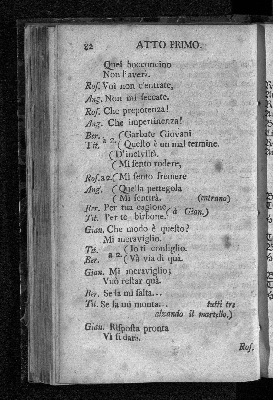 22 ATTO PRIMO.
Quel bocconcino
Non l'averà.
Rof. Voi non c'entrate,
Ang. Non mi seccate.
Rof. Che prepotenza!
Ang. Che impertinenza!
Ber. (Garbate Giovani
Tit. a 2. (Questo è un mal termine.
(D'inciviltà.
(Mi sento rodere,
Rof. a 2. (Mi sento fremere
Ang. (Quella pettegola
(Mi sentirà. (entrano)
Ber. Per tua cagione
Tit. Per te birbone. (a Gian.)
Gian. Che modo è questo?
Mi meraviglio.
Tit. (Io ti consiglio.
Ber. a 2. (Và via di quà.
Gian. Mi meraviglio;
Vuò restar quà.
Ber. Se la mi salta...
Tit. Se la mi monta... tutti tre
alzando il martello.)
Gian. Risposta pronta
Vi si darà.
Rof.